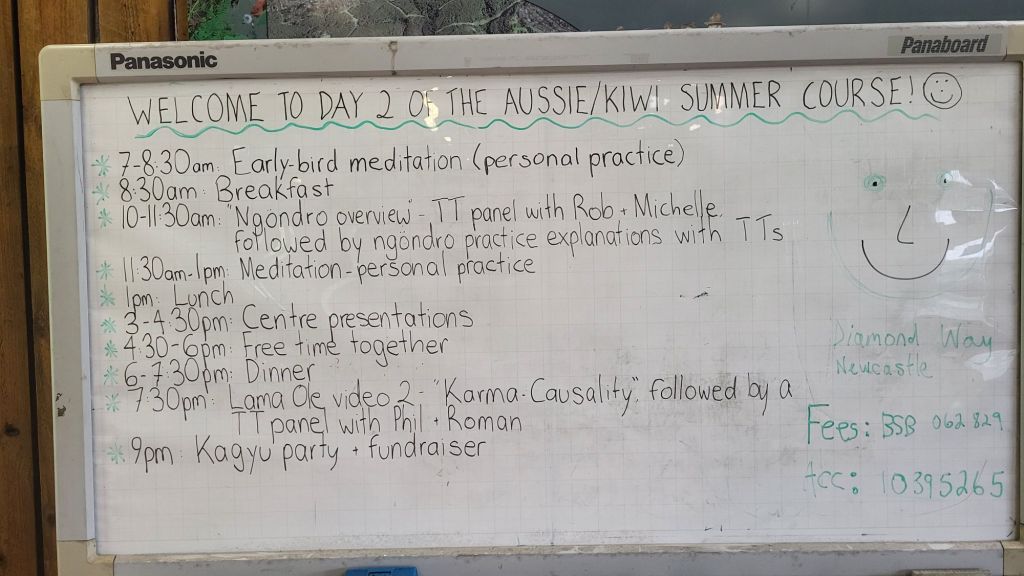 Panasonic
Panaboard
WELCOME TO DAY 2 OF THE AUSSIE/KIWI SUMMER COURSE!
7-8:30am: Early-bird meditation (personal practice)
8:30am: Breakfast
10-11:30am: "Ngöndro overview" - TT panel with Rob + Michelle,
followed by ngöndro practice explanations with TTs
11:30am-1pm: Meditation-personal practice
1pm: Lunch
3-4:30pm: Centre presentations
4:30-6pm: Free time together
6-7:30pm: Dinner
7:30pm: Lama Ole video 2 - "Karma-Causality", followed by a
TT panel with Phil + Roman
9pm: Kagyu party + fundraiser
Diamond Way
Newcastle
Fees: BSB 062 829
Acc: 10395265